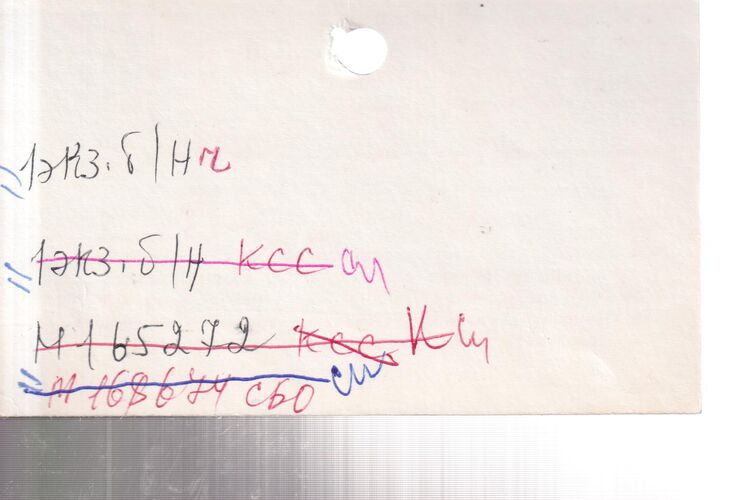 1экз. б/н ч
1экз. б/н КСС Сч
М 165272 КСС К Сч
М 168674 СБО Сч